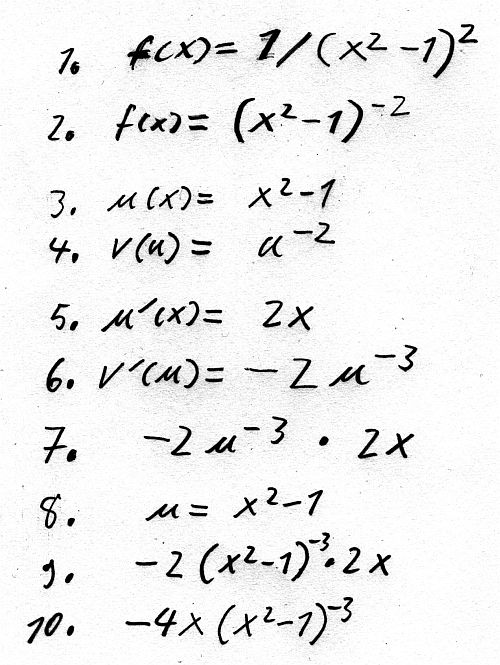 1. f(x)= 1/(x²-1)²
2. f(x)= (x²-1)⁻²
3. u(x)= x²-1
4. v(u)= u⁻²
5. u′(x)= 2x
6. v′(u)= -2u⁻³
7. -2u⁻³ · 2x
8. u= x²-1
9. -2(x²-1)⁻³·2x
10. -4x(x²-1)⁻³